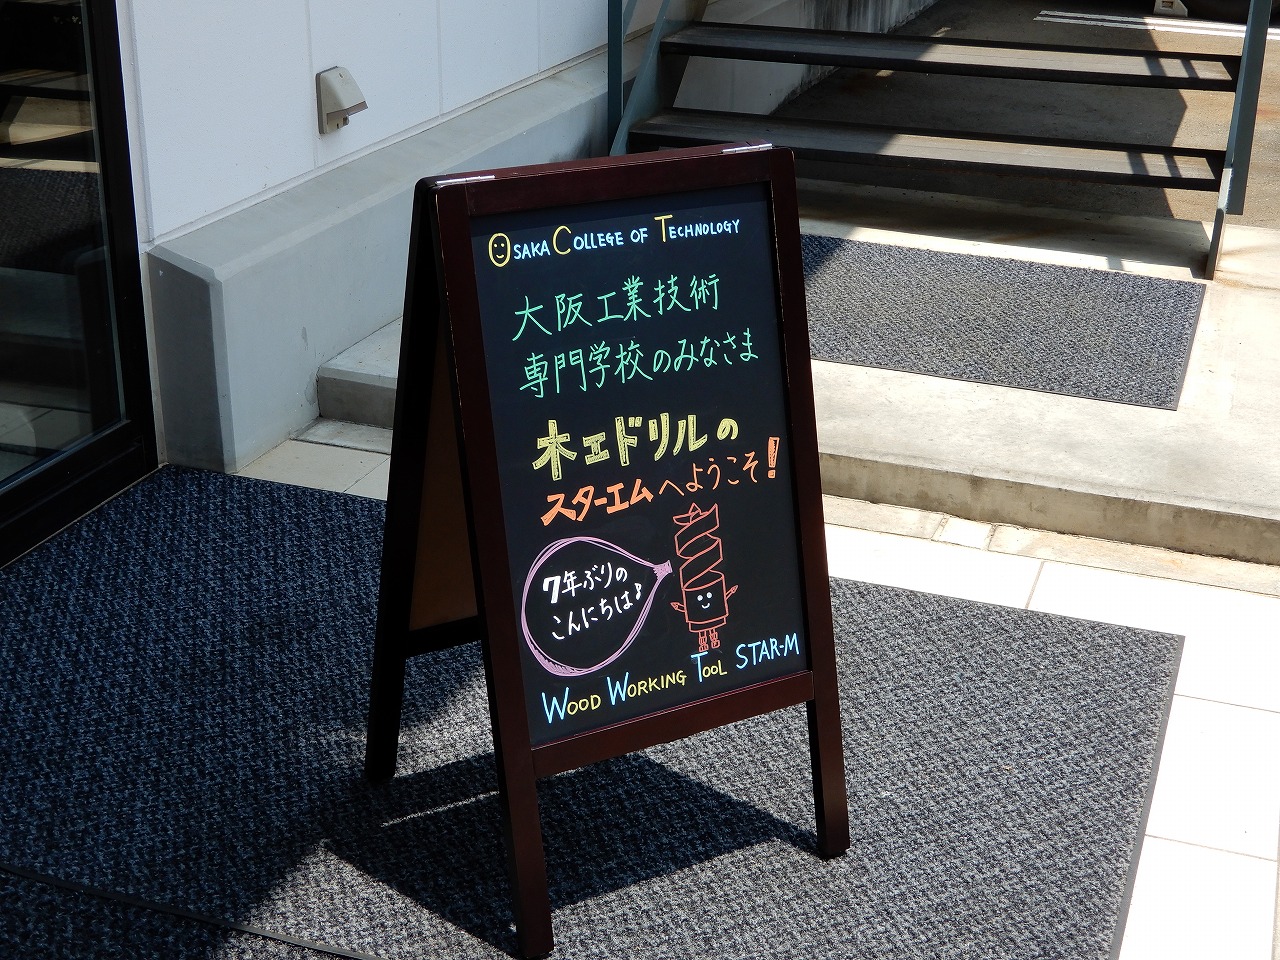 OSAKA COLLEGE OF TECHNOLOGY
大阪工業技術
専門学校のみなさま
木工ドリルの
スターエムへようこそ!
7年ぶりの
こんにちは♪
WOOD WORKING TOOL STAR-M